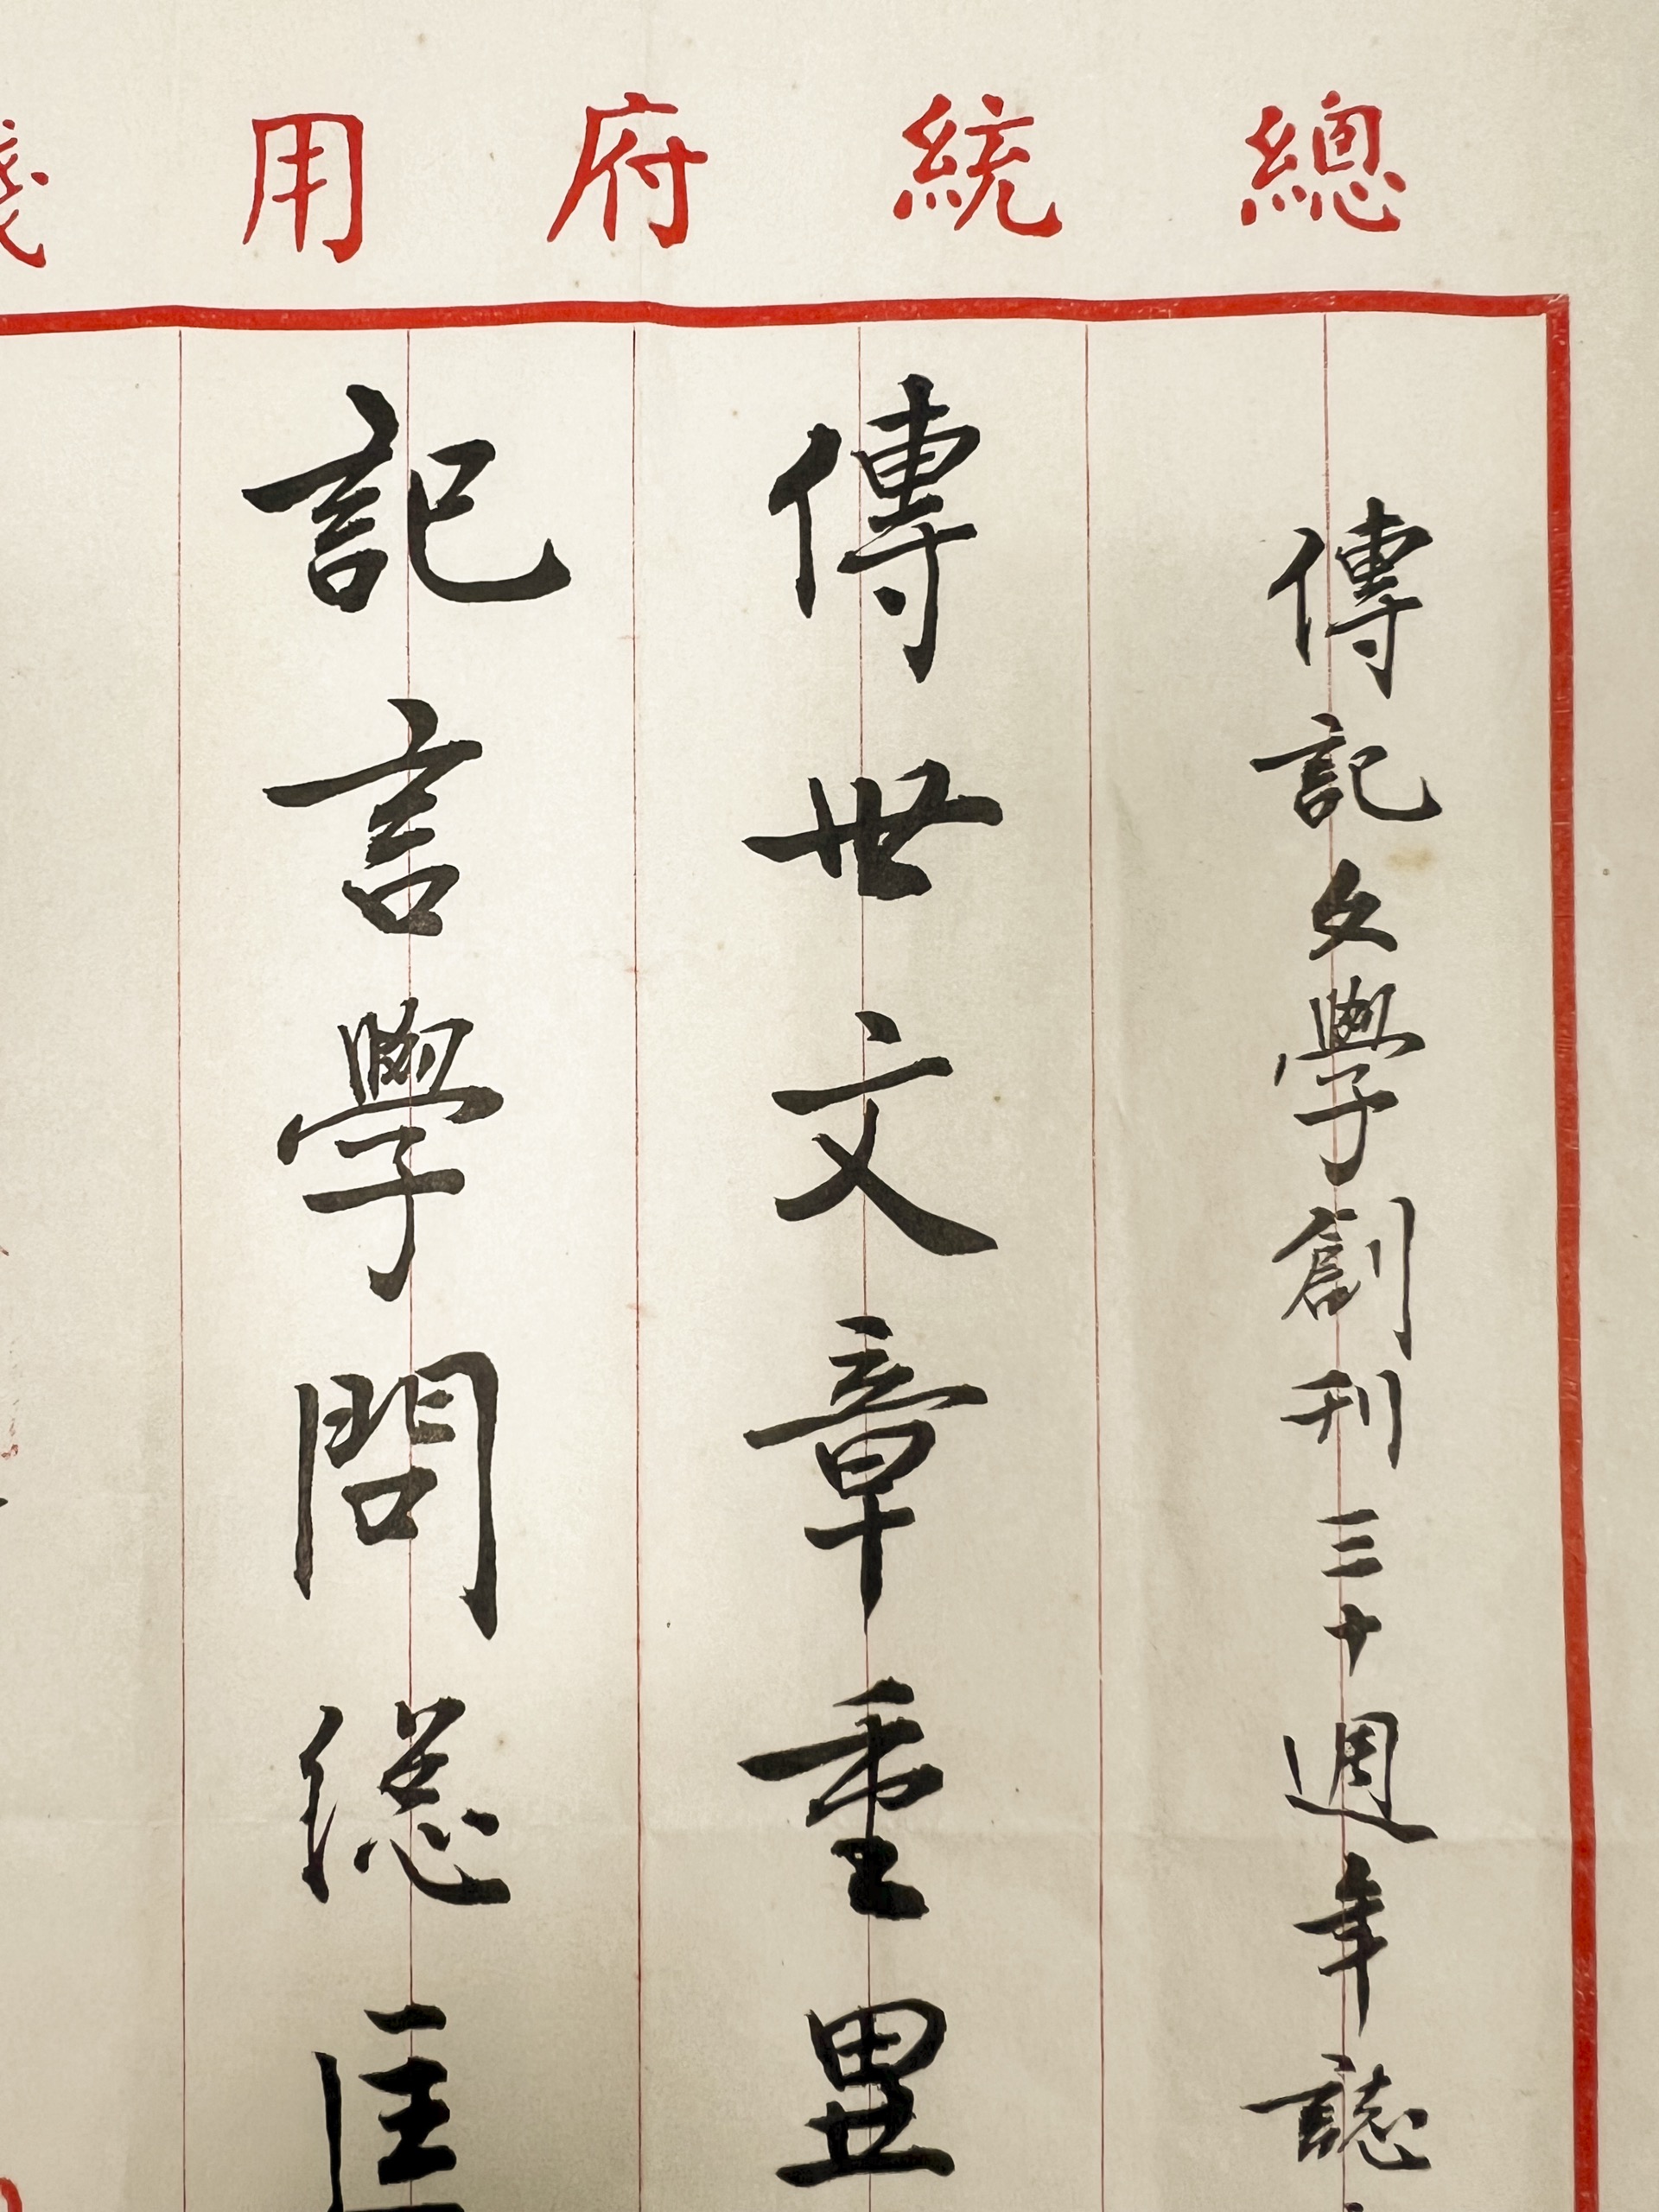 總統府用箋
傳記文學創刊三十週年誌
傳世文章重
記言學問総匡